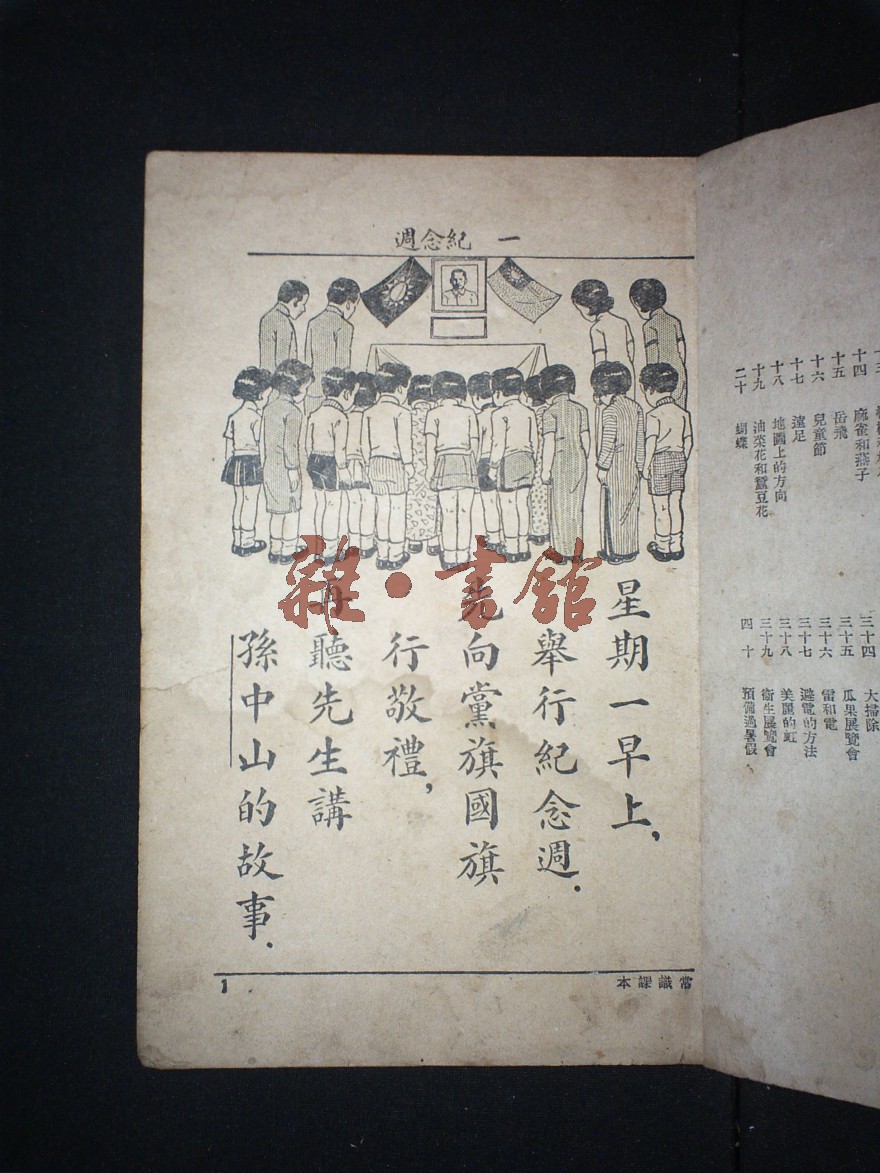 一 紀念週
星期一早上，
舉行紀念週．
先向黨旗國旗
行敬禮，
再聽先生講
孫中山的故事．
常識課本
1
十四 麻雀和燕子
十五 岳飛
十六 兒童節
十七 遠足
十八 地圖上的方向
十九 油菜花和蠶豆花
二十 蝴蝶
三十四 大掃除
三十五 瓜果展覽會
三十六 雷和電
三十七 避電的方法
三十八 美麗的虹
三十九 衞生展覽會
四十 預備過暑假
雜·書館